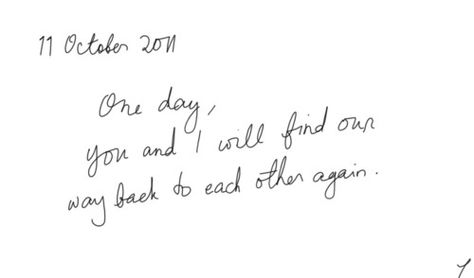 11 October 2011
One day,
you and I will find our
way back to each other again.